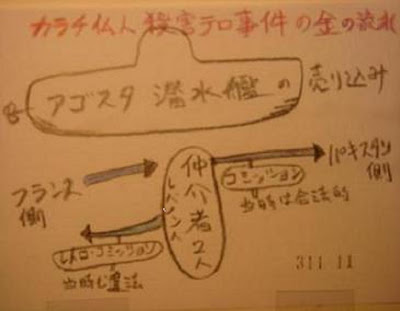 カラチ仏人殺害テロ事件の金の流れ
アゴスタ 潜水艦の売り込み
フランス側
仲介者2人
レバノン人
コミッション
当時は合法的
パキスタン側
レトロ・コミッション
当時も違法
311 11